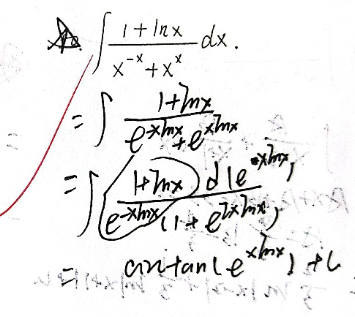 ∫ (1+lnx)/(x^{-x}+x^{x}) dx.
= ∫ (1+lnx)/(e^{-xlnx}+e^{xlnx})
= ∫ (1+lnx) d(e^{-xlnx})/(e^{-xlnx}(1+e^{2xlnx}))
arctan(e^{xlnx})+C